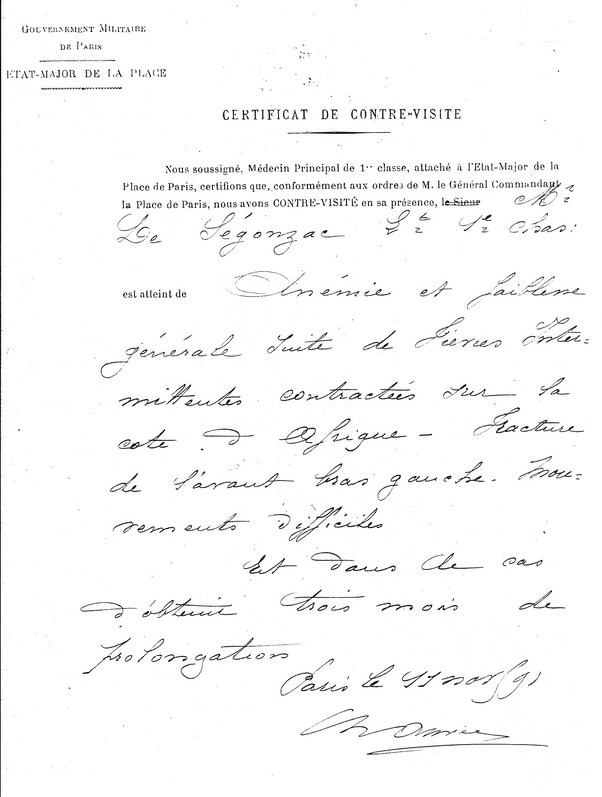 GOUVERNEMENT MILITAIRE
DE PARIS
ETAT-MAJOR DE LA PLACE
CERTIFICAT DE CONTRE-VISITE
Nous soussigné, Médecin Principal de 1re classe, attaché à l'Etat-Major de la
Place de Paris, certifions que, conformément aux ordres de M. le Général Commandant
la Place de Paris, nous avons CONTRE-VISITÉ en sa présence, le Sieur Mr
De Ségonzac Lt 1e Chas:
est atteint de Anémie et faiblesse
générale suite de Fièvres Inter-
mittentes contractées sur la
cote d'Afrique - Fracture
de l'avant bras gauche. Mou-
vements difficiles
Est dans le cas
d'obtenir trois mois de
prolongation
Paris le 11 nov 91